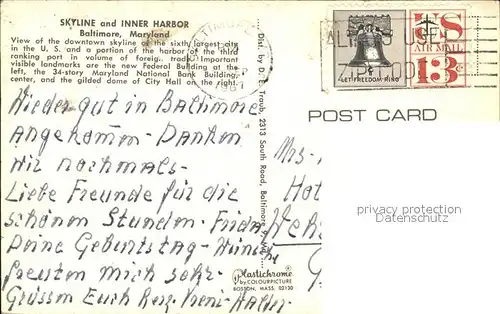 SKYLINE and INNER HARBOR
Baltimore, Maryland
View of the downtown skyline of the sixth largest city
in the U. S. and a portion of the harbor of the third
ranking port in volume of foreign trade. Important
visible landmarks are the new Federal Building at the
left, the 34-story Maryland National Bank Building,
center, and the gilded dome of City Hall on the right.
Wieder gut in Baltimore
angekommen - Danken
wir nochmals -
Liebe Freunde für die
schönen Stunden - Frida
Deine Geburtstag - Wünsche
freuten mich sehr.
Grüssen Euch Herz.
Dist. by D. E. Traub, 2313 South Road, Baltimore 9, Md.
Plastichrome®
by COLOURPICTURE
BOSTON, MASS. 02130
LET FREEDOM RING
US
AIR MAIL
13¢
ZIP CODE
POST CARD
Mrs.
privacy protection
Datenschutz